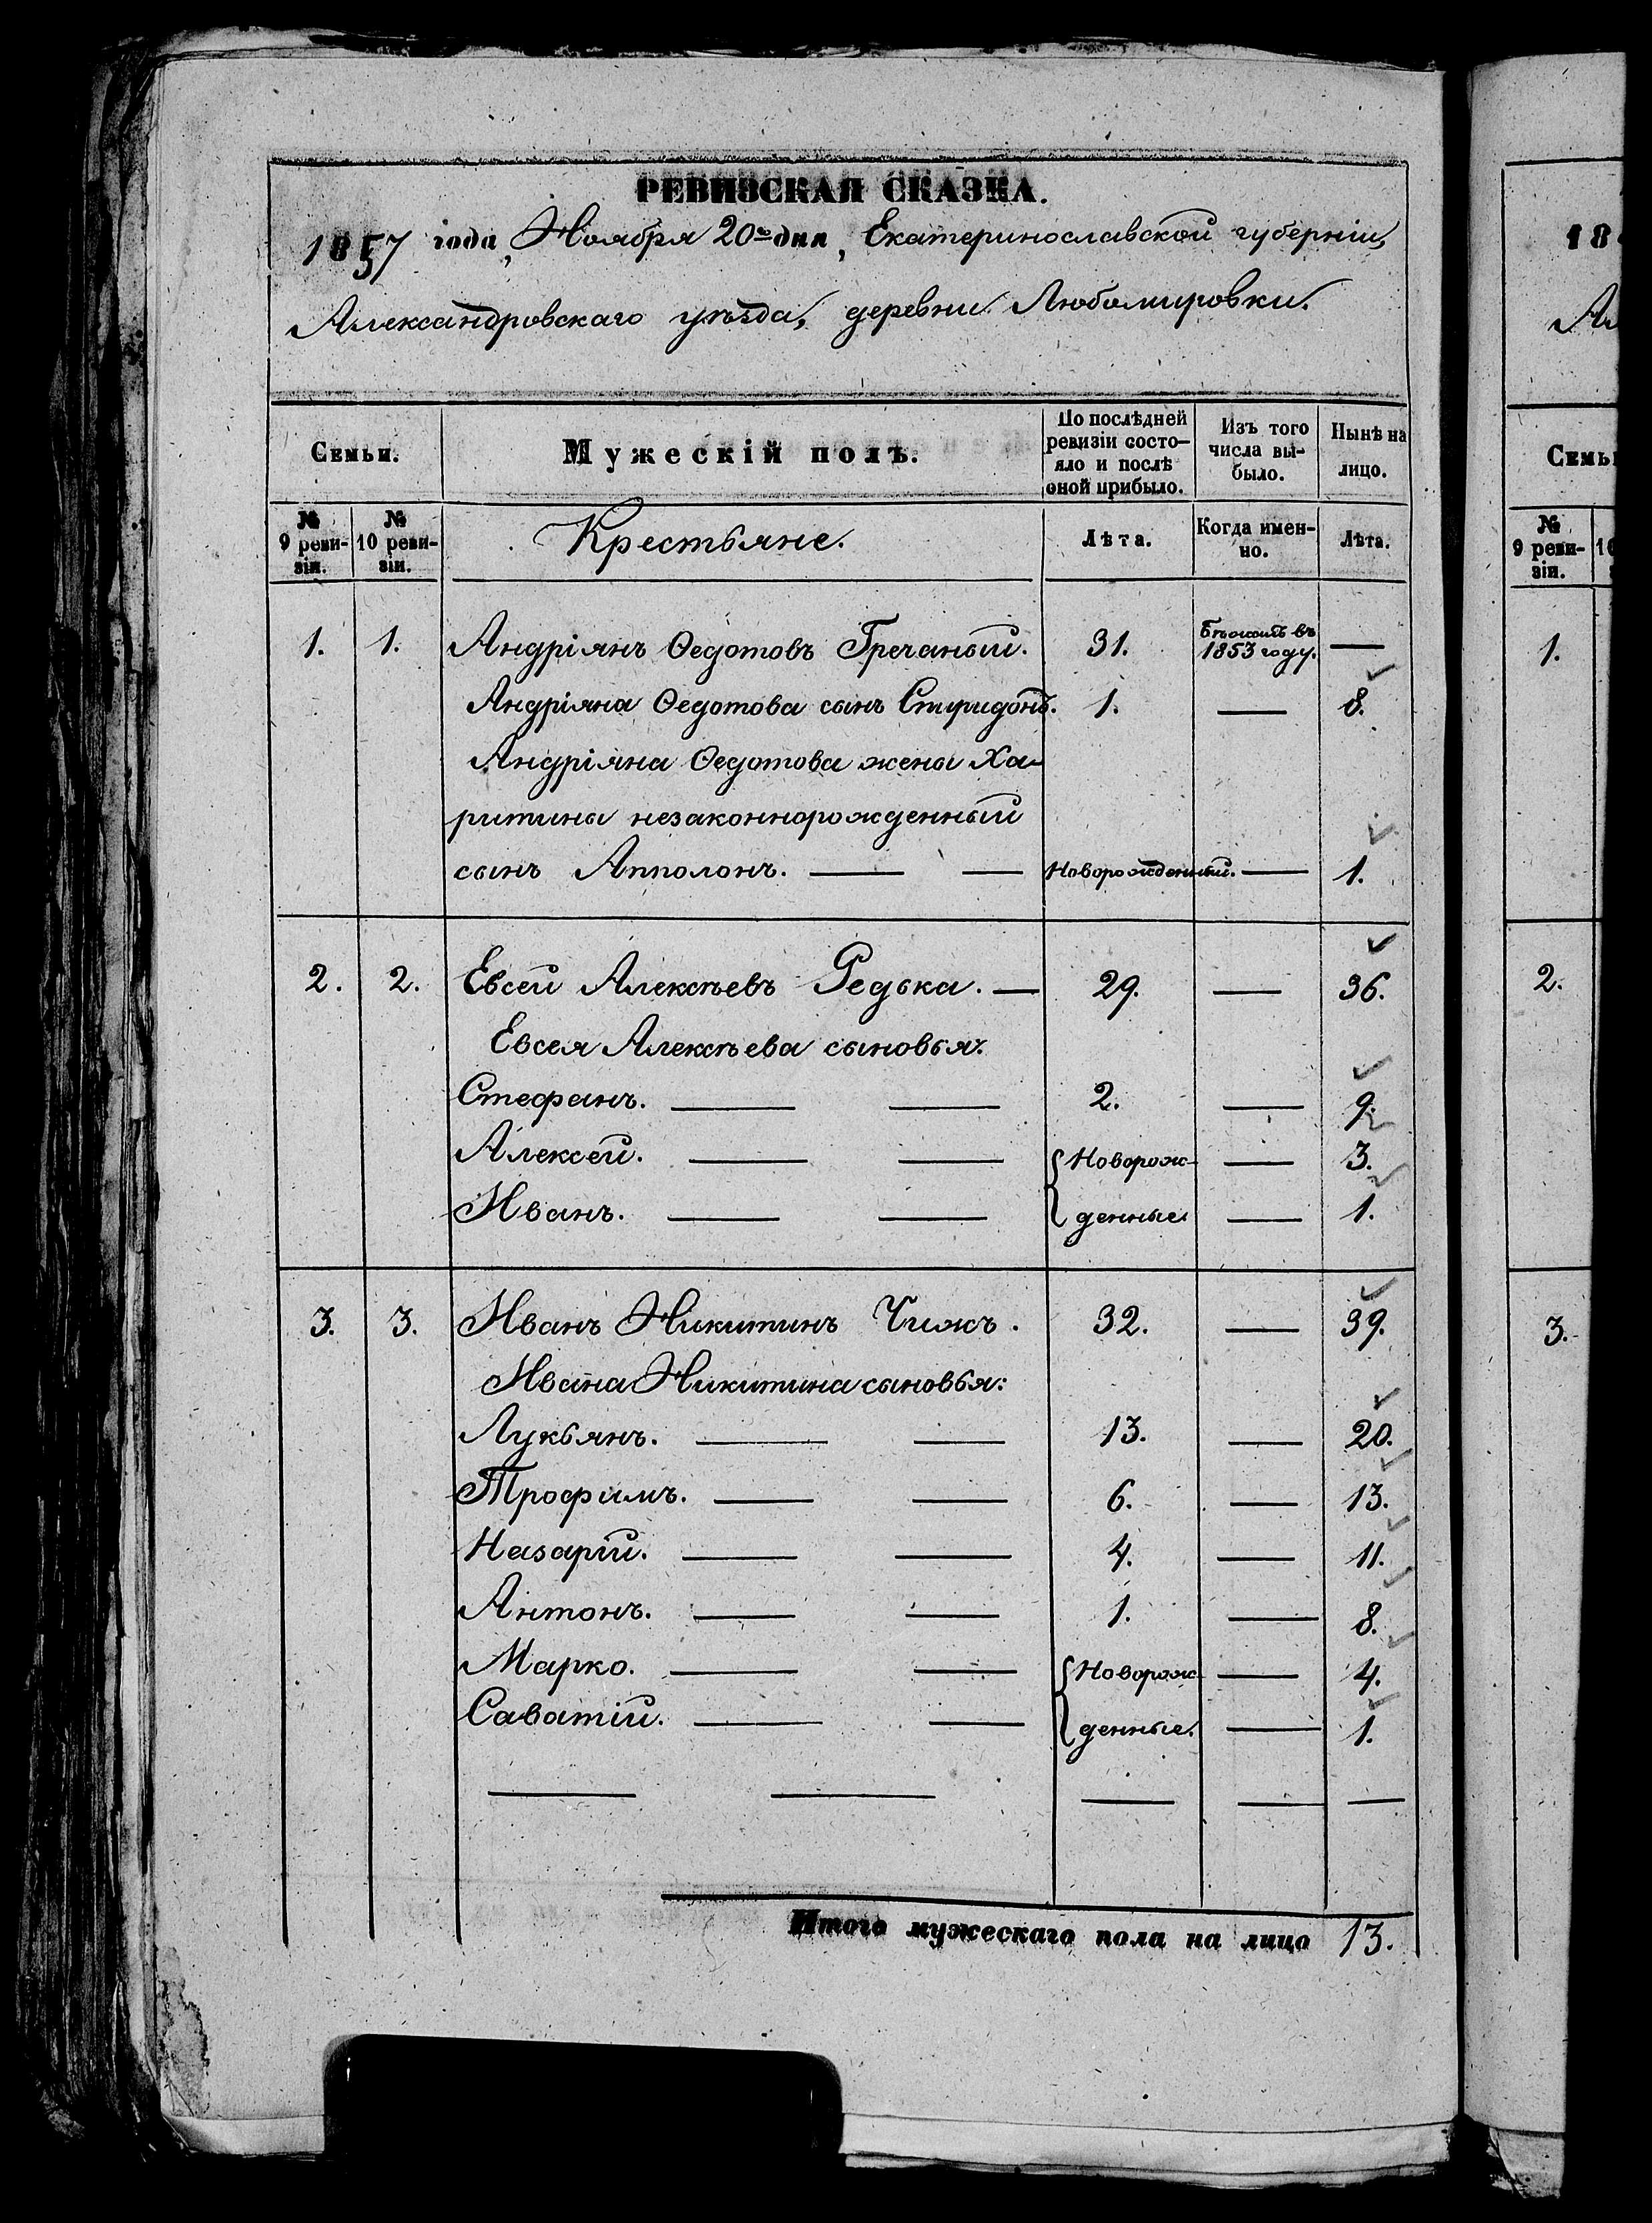 РЕВИЗСКАЯ СКАЗКА.
1857 года, Ноября 20го дня, Екатеринославской губерніи,
Александровскаго уѣзда, деревни Любомировки.
Семьи.
Мужескій полъ.
По послѣдней ревизіи состо-
яло и послѣ
оной прибыло.
Изъ того
числа вы-
было.
Нынѣ на
лицо.
№ 9 реви-
зіи.
№ 10 реви-
зіи.
Крестьяне.
Лѣта.
Когда имен-
но.
Лѣта.
1. 1. Андріянъ Ѳедотовъ Гречаный. 31. Бѣжалъ въ 1853 году. —
Андріяна Ѳедотова сынъ Спиридонъ. 1. — 8.
Андріяна Ѳедотова жены Ха-
ритины незаконнорожденный
сынъ Апполонъ. — — Новорожденный. — 1.
2. 2. Евсей Алексѣевъ Редька. — 29. — 36.
Евсея Алексѣева сыновья:
Стефанъ. — — 2. — 9.
Алексей. — — Новорож- — 3.
Иванъ. — — денные — 1.
3. 3. Иванъ Никитинъ Чижъ. 32. — 39.
Ивана Никитина сыновья:
Лукьянъ. — — 13. — 20.
Трофимъ. — — 6. — 13.
Назарій. — — 4. — 11.
Антонъ. — — 1. — 8.
Марко. — — Новорож- — 4.
Саватій. — — денные. — 1.
Итого мужескаго пола на лицо 13.
18
Ал
Семьи
№
9 реви-
зіи.
10
1.
2.
3.